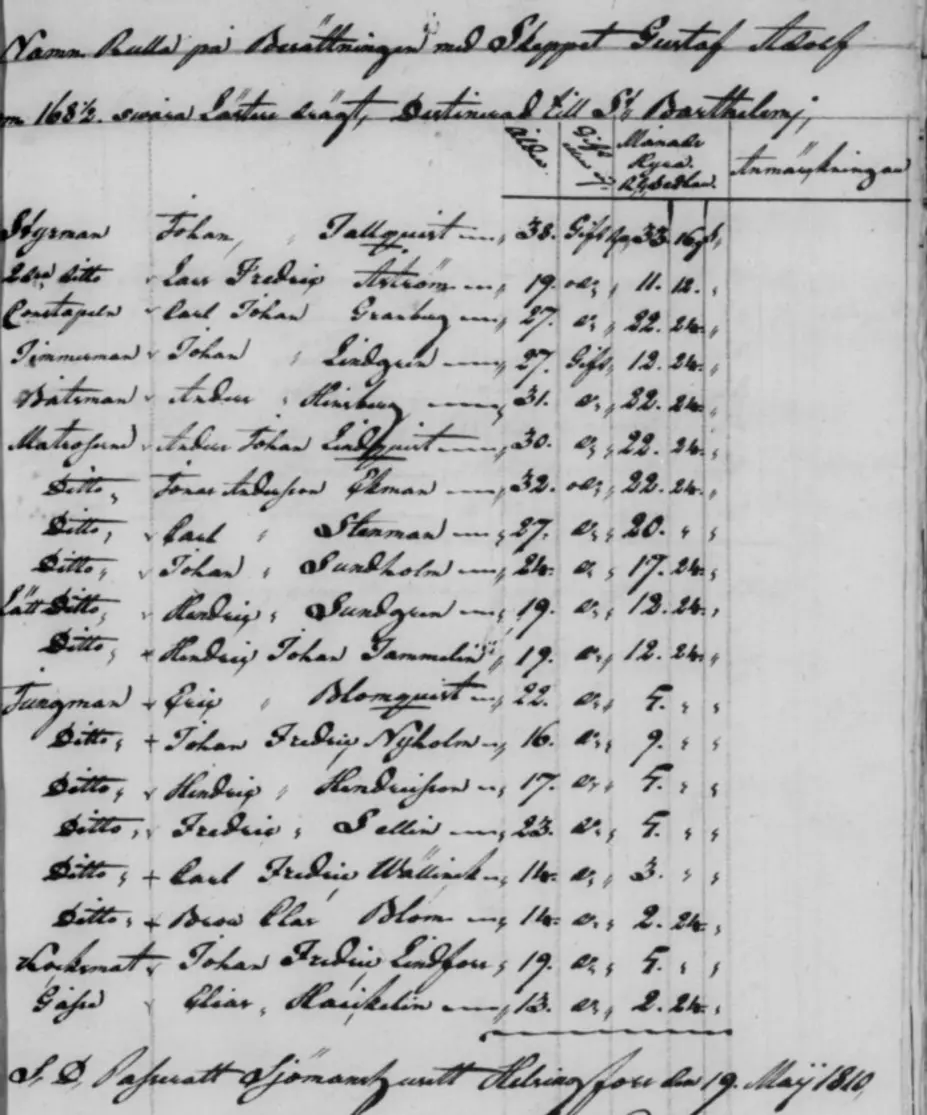 Namn Rulla på Besättningen med Skeppet Gustaf Adolf
om 168½. swåra Läster drägt, Destinerad till St Barthelemj,
Ålder. Gift eller ej Månads Hyra. Anmärkningar
Styrman Johan Tallquist 38. Gift 33 16
2dra ditto Lars Fredric Åström 19. og 11. 12.
Constapeln Carl Johan Granberg 27. 22. 24.
Timmerman Johan Lindgren 27. Gift 12. 24.
Båtsman Anders Hinsberg 31. 22. 24.
Matroserne Anders Johan Lindquist 30. 22. 24.
Ditto, Jonas Andersson Ekman 32. og 22. 24.
Ditto, Carl Stenman 27. 20.
Ditto, Johan Sundholm 24. 17. 24.
Lätt Ditto, Hendric Sundgren 19. 12. 24.
Ditto, Hendric Johan Tammelin 19. 12. 24.
Jungman Eric Blomquist 22.
Ditto, + Johan Fredric Nyholm 16. 9.
Ditto, Hindric Hendricsson 17.
Ditto, Fredric Sellin 23.
Ditto, + Carl Fredric Wällinck 14. 3.
Ditto, + Blom 14. 2. 24.
Kocksmat Johan Fredric Lindfors 19.
Gåsse Elias 13. 2. 24.
S. D. Passeratt Sjömanshuset Helsingfors den 19. Maij 1810,